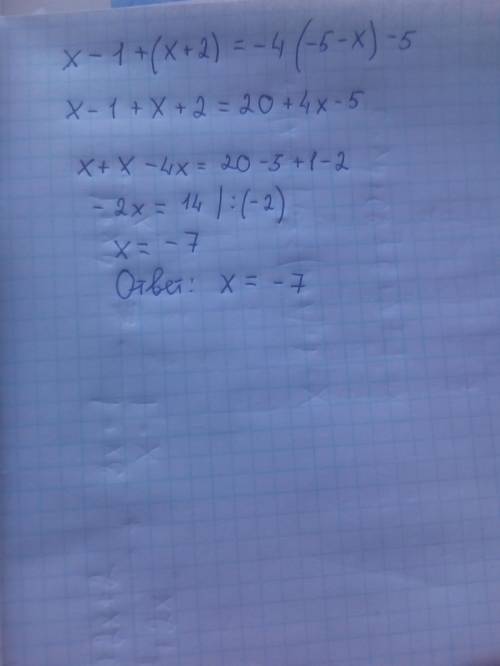 x - 1 + (x + 2) = -4 (-5 - x) - 5
x - 1 + x + 2 = 20 + 4x - 5
x + x - 4x = 20 - 5 + 1 - 2
- 2x = 14 | : (-2)
x = - 7
Ответ: x = - 7